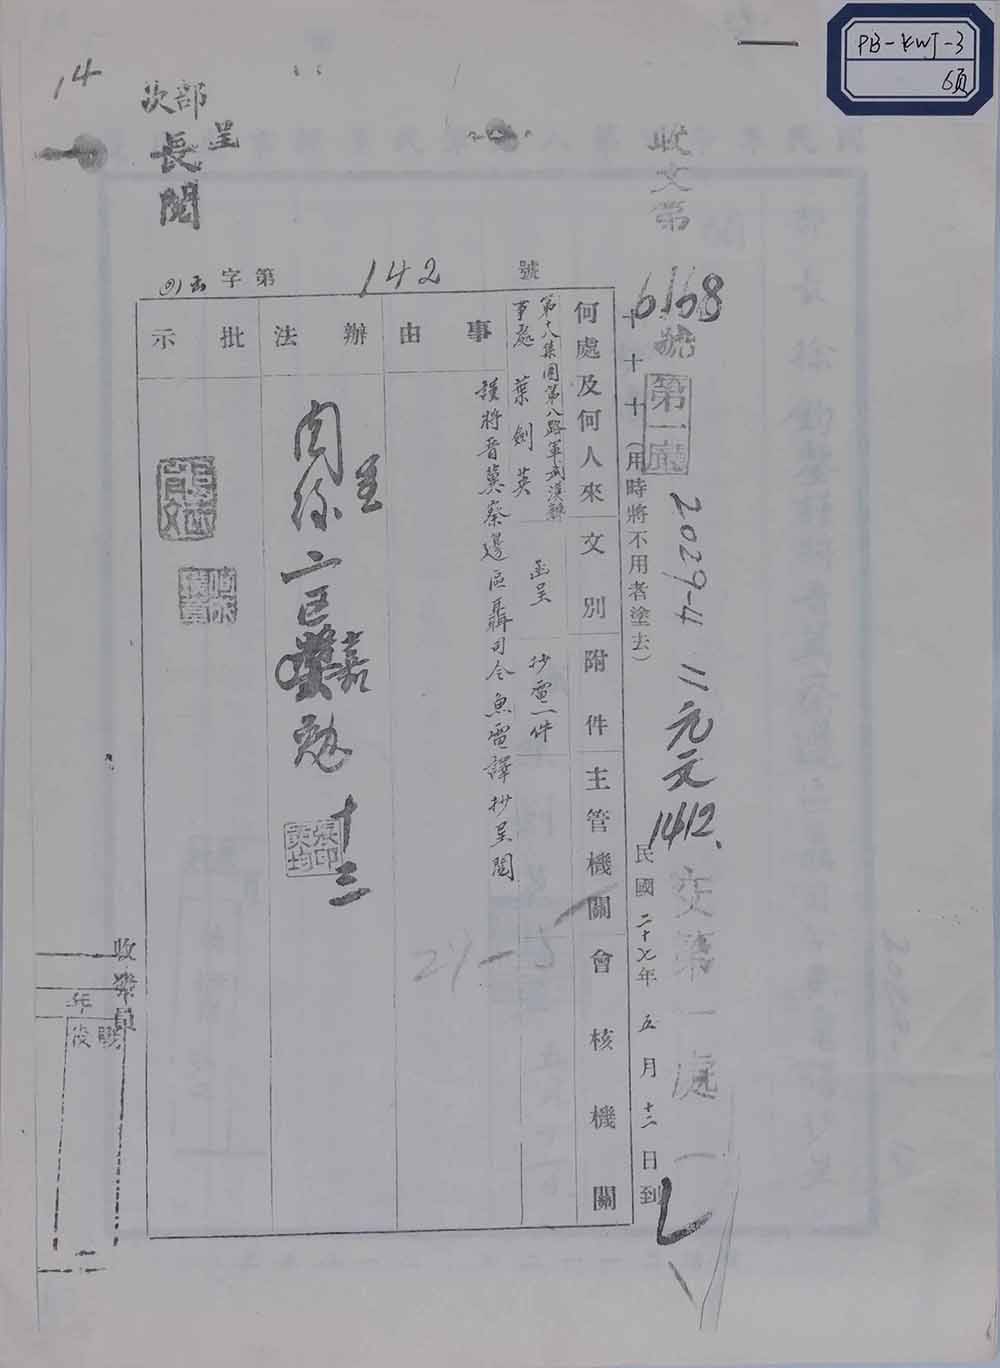 PB-KWJ-3
6页
14
次部
呈
長閱
收文第
6168
號
第一廳
2029-4
11元元
1412.
交第一處一
字第 142 號
十十十（用時將不用者塗去）
民國二十七年五月十二日到
何處及何人來文別附件主管機關會核機關
第十八集團第八路軍武漢辦
事處 葉劍英 函呈 抄電一件
事由
謹將晉冀察邊區聶司令魚電譯抄呈閱
辦法
呈
十三
張印
批示
21-5
收發員
年